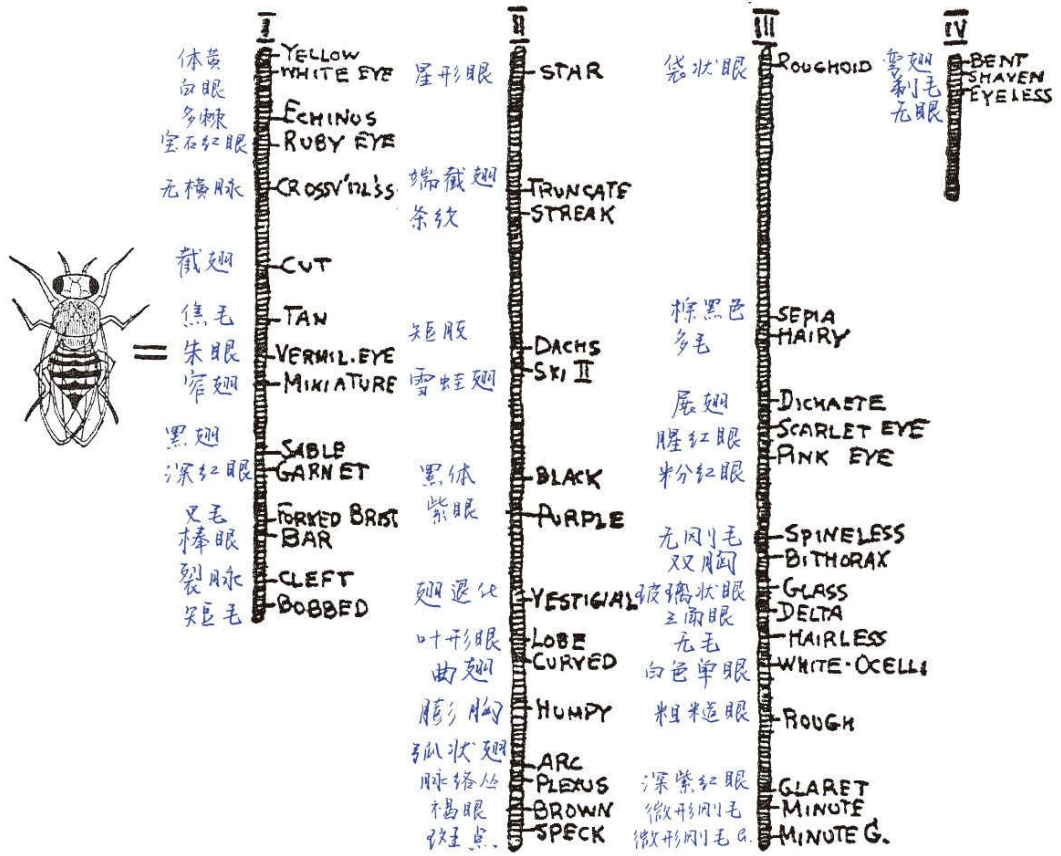 I
体黄 YELLOW
白眼 WHITE EYE
多棘 ECHINUS
宝石红眼 RUBY EYE
无横脉
截翅 CUT
焦毛 TAN
朱眼 VERMIL.EYE
窄翅 MINIATURE
黑翅 SABLE
深红眼 GARNET
叉毛 FORKED BRIST
棒眼 BAR
裂脉 CLEFT
短毛 BOBBED
=
II
星形眼 STAR
端截翅 TRUNCATE
条纹 STREAK
短肢 DACHS
雪蛙翅 SKI II
黑体 BLACK
紫眼 PURPLE
翅退化 VESTIGIAL
叶形眼 LOBE
曲翅 CURVED
膨胸 HUMPY
弧状翅 ARC
脉络丛 PLEXUS
褐眼 BROWN
斑点. SPECK
III
袋状眼 ROUGHOID
棕黑色 SEPIA
多毛 HAIRY
展翅 DICHAETE
腥红眼 SCARLET EYE
粉红眼 PINK EYE
无刚毛 SPINELESS
双胸 BITHORAX
玻璃状眼 GLASS
三角眼 DELTA
无毛 HAIRLESS
白色单眼 WHITE-OCELLI
粗糙眼 ROUGH
深紫红眼 GLARET
微形刚毛 MINUTE
微形刚毛G. MINUTE G.
IV
弯翅 BENT
剃毛 SHAVEN
无眼 EYELESS